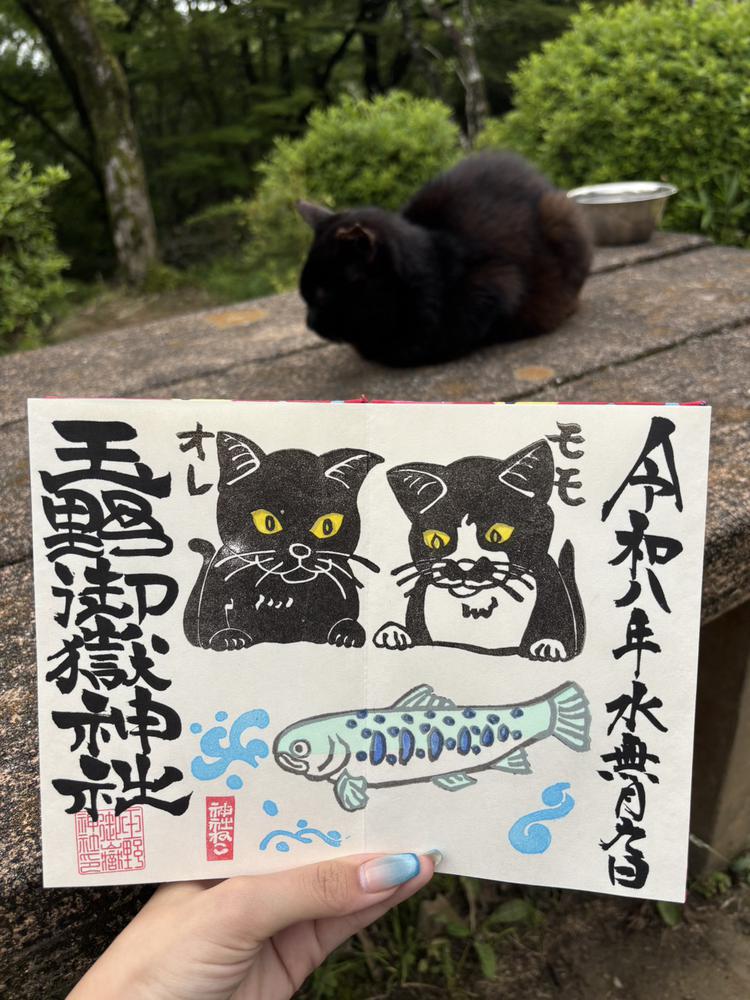 令和八年水無月吉日
モモ
オレ
玉野御嶽神社
神社ねこ
玉野
御嶽
神社印